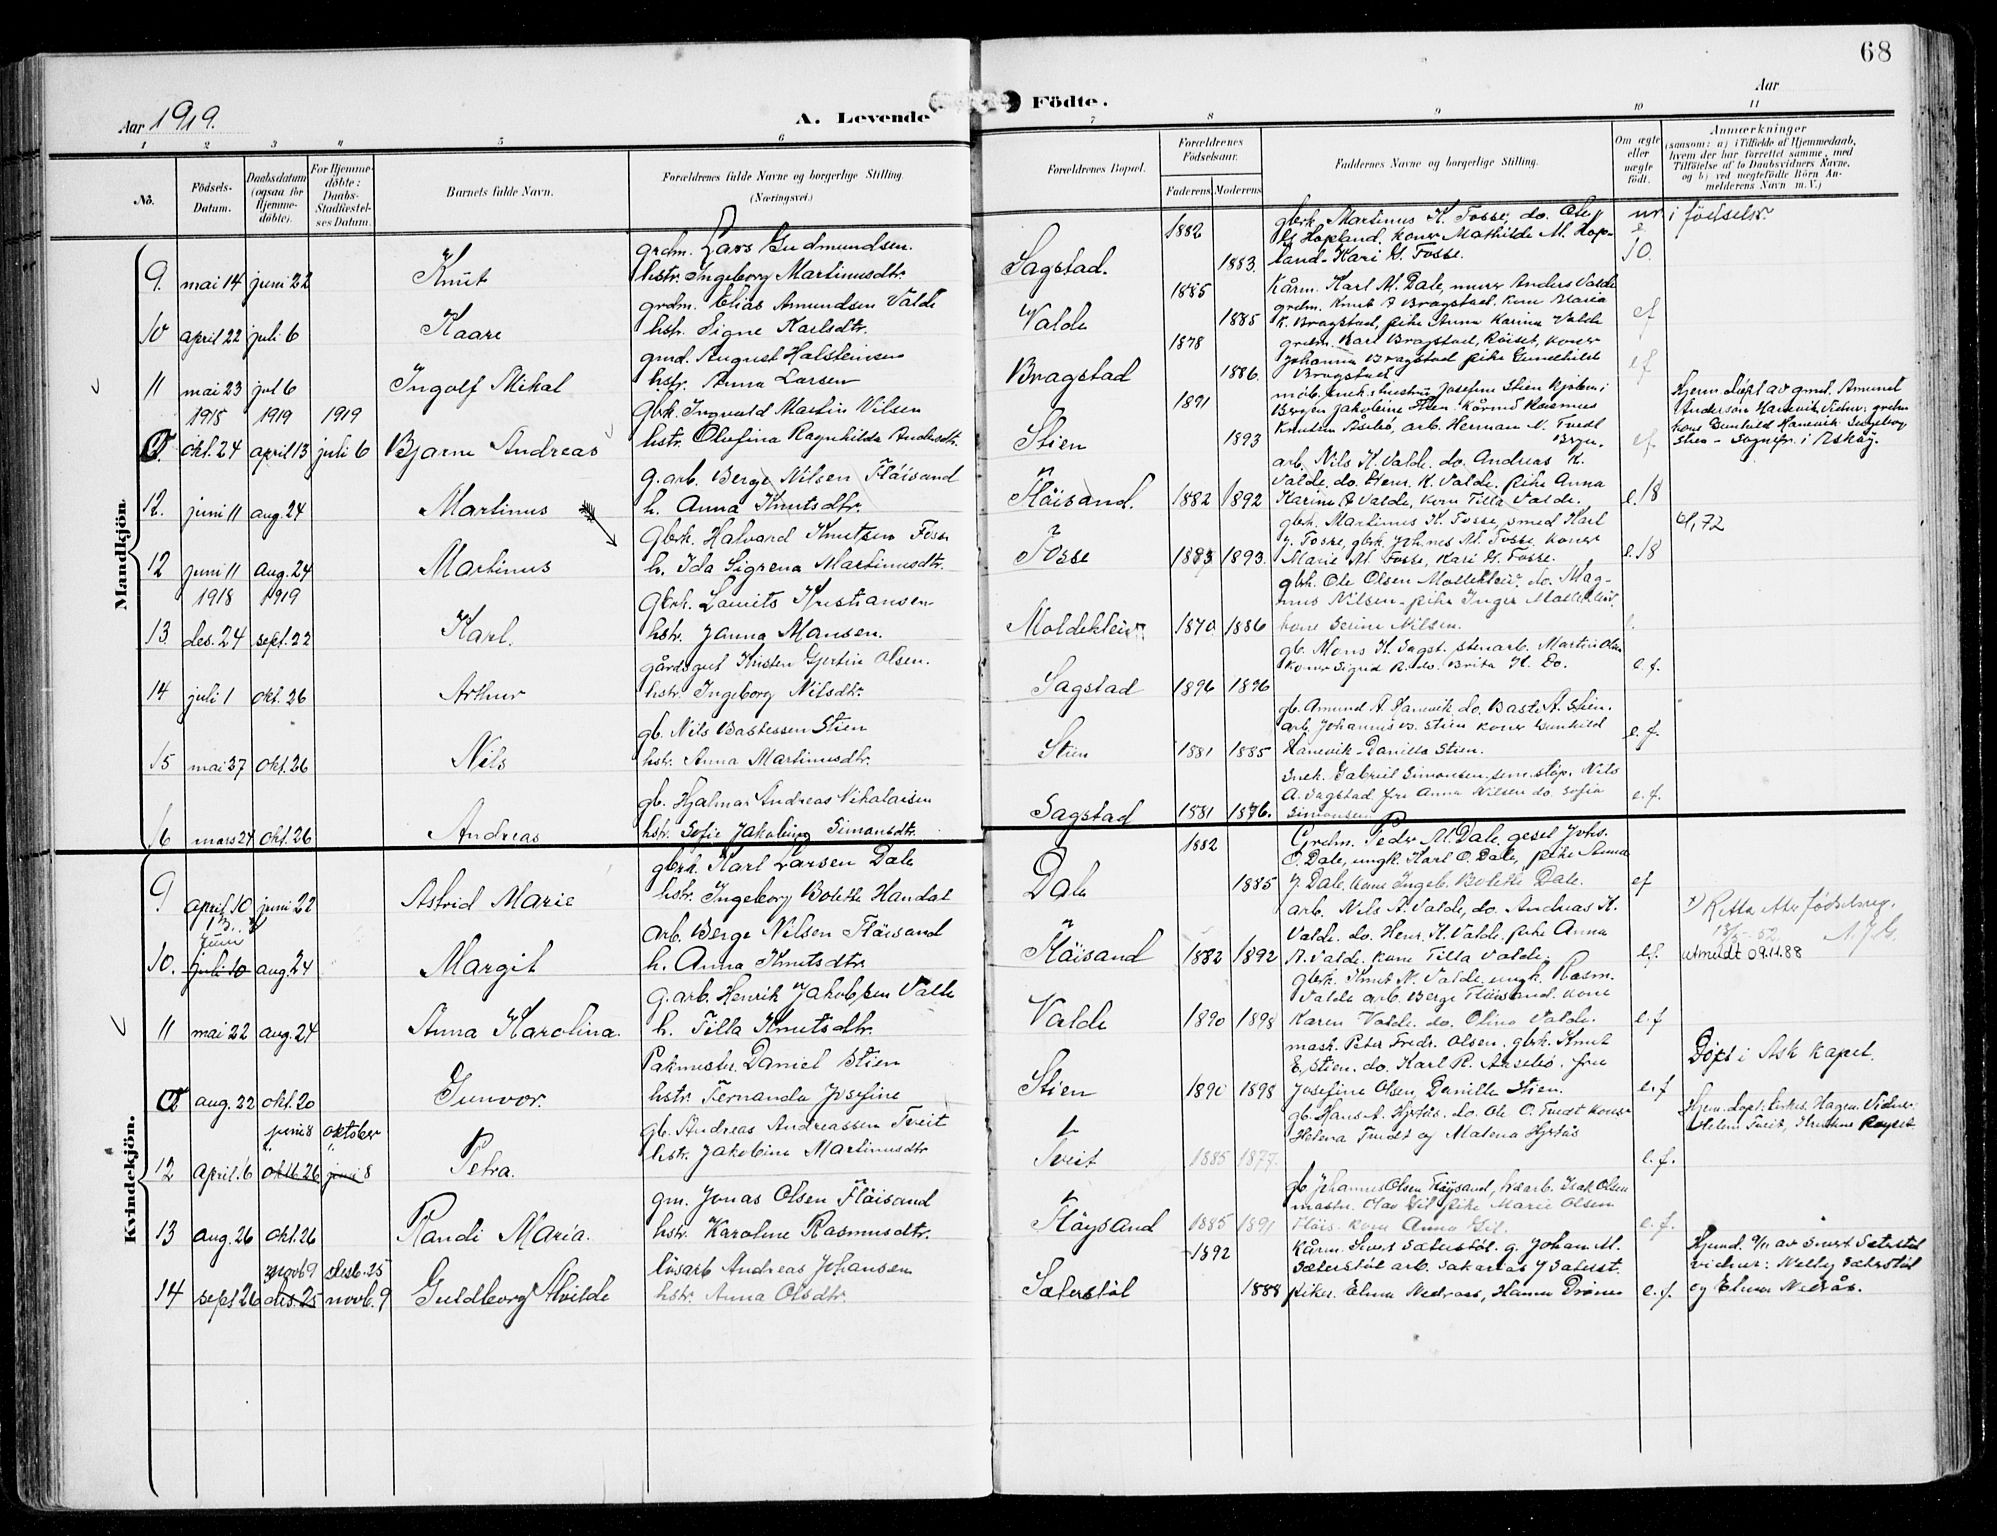 68
Aar 1919.
A. Levende Födte.
Aar
1 2 3 4 5 6 7 8 9 10 11
No.
Födsels-Datum.
Daabsdatum (ogsaa for Hjemme-döbte).
For Hjemme-döbte: Daabs-Stadfæstelses Datum.
Barnets fulde Navn.
Forældrenes fulde Navne og borgerlige Stilling.
(Næringsvei.)
Forældrenes Bopæl.
Forældrenes Födselsaar.
Faderens. Moderens.
Faddernes Navne og borgerlige Stilling.
Om ægte eller uægte födt.
Anmærkninger
(saasom: a) i Tilfælde af Hjemmedaab, hvem der har forrettet samme, med Tilföielse af to Daabsvidners Navne, og b) ved uægtefödte Börn Anmelderens Navn m. V.)
Mandkjön.
grdm. Lars Gudmundsen.
9. mai 14 juni 22 Knut hstr. Ingeborg Martinusdtr.
Sagstad. 1882 1883.
gbrk. Martinus K. Fosse, do. Ole
Hopland, koner Mathilde M. Hop-
land. Kari G. Fosse.
10.
i födselsr.
grdm. Elias Amundsen Valde
10 april 22 juli 6 Kaare hstr. Signe Karlsdtr.
Valde 1885 1885
Kårm. Karl M. Dale, murer Anders Valde
grdm. Knut A Bragstad, kone Maria
K. Bragstad, pike Anna Karina Valde
ef
gmd. August Halsteinsen
11 mai 23 jul 6 Ingolf Mikal hstr. Anna Larsen
Bragstad 1878 1886.
grdm. Karl Bragstad, Röiset, koner
Johanna Bragstad pike Gunhild
Bragstad
ef
1918 1919 1919
gbrk. Ingvald Martin Nilsen
okt. 24 april 13 juli 6 Bjarne Andreas hstr. Olefina Ragnhilda Andersdtr.
Stien 1891 1893
Josefine Stien
Bergen Jakobine Stien. Kårmd Rasmus
Knudsen Åsebö, arb. Herman N. Tvedt
Bergen.
ef
Hjem. döpt av gmd. Amund
Anderson Hanevik. Vidner. grdm
kone Gunhild Hanevik Ingeborg
Stien - Sognepr. i Askøy.
g. arb. Berge Nilsen Flöisand
12. juni 11 aug. 24 Martinus h. Anna Knutsdtr.
Flöisand. 1882 1892
arb. Nils K. Valde. do. Andreas K.
Valde, do. Henr. K. Valde. pike Anna
Karine A Valde, kone Tilla Valde.
e. 18
Gbrk. Halvard Knutsen Fosse
12 juni 11 aug. 24 Martinus h. Ida Sigrena Martinusdtr.
Fosse 1883 1893.
gbrk. Martinus K. Fosse, smed Karl
J. Fosse, gbrk. Johnes M. Fosse, koner
Marie M. Fosse, Kari G. Fosse.
e. 18
el, 72
1918 1919
Gbrk. Laurits Kristiansen
13. des. 24 sept. 22 Karl. hstr. Janna Mansen.
Moldekleiv 1870 1886
gbk. Ole Olsen Moldekleiv, do. Mag-
nus Nilsen - pike Inger Moldekleiv.
kone Serine Nilsen.
gårdsgut Kristen Gjertin Olsen.
14 juli 1 okt. 26 Arthur hstr. Ingeborg Nilsdtr.
Sagstad 1896 1896
gb. Mons K. Sagst. stenarb. Martin Olsen
koner Sigrid R. do. Brita K. do.
e. f.
gb. Nils Bastessen Stien
15 mai 27 okt. 26 Nils hstr. Anna Martinusdtr.
Stien 1881 1885
gb. Amund A. Hanevik, do. Baste A. Stien.
arb. Johannes B. Stien koner Gunhild
Hanevik - Danilla Stien.
e. f.
gb. Hjalmar Andreas Nikolaisen
16 mars 27 okt. 26 Andreas hstr. Sofie Jakobine Simonsdtr.
Sagstad 1881 1876.
Snek. Gabriel Simonsen. Nils
A. Sagstad frk Anna Nilsen do Sofia
Simonsen
e. f.
Kvindekjön.
gbrk. Karl Larsen Dale
9. april 10 juni 22 Astrid Marie hstr. Ingeborg Bolette Handal
Dale 1882 1885
Grdm. Peder M. Dale, gesel Johs.
O. Dale, ungk. Karl O. Dale, pike Anna
J. Dale. kone Ingeb. Bolette Dale.
ef
juni
arb. Berge Nilsen Flöisand
10. juli 10 aug. 24 Margit h. Anna Knutsdtr.
Flöisand 1882 1892
arb. Nils A. Valde, do. Andreas K.
Valde. do. Henr. K. Valde. pike Anna
A. Valde. kone Tilla Valde.
e.f.
x) Retta etter födselsreg.
utmeldt 09.11.88
g. arb. Henrik Jakobsen Valde
11 mai 22 aug. 24 Anna Karolina. h. Tilla Knutsdtr.
Valde 1890 1898
gbrk. Knut N. Valde, ungk. Rasm.
Valde arb. Berge Flöisand. kone
Karen Valde. do. Olina Valde.
e. f
Pakmester Daniel Stien
aug. 22 okt. 20 Gunvor. hstr. Fernanda Josefine
Stien 1890 1898
mask. Peter Fredr. Olsen. gbrk. Knut
E. Stien. do. Karl R. Aasebö. frue
Josefine Olsen, Danilla Stien.
e. f
Döpt i Ask kapel.
juni 8 oktober
gb. Andreas Andreassen Tveit
12 april 6 okt. 26 juni 8 Petra. hstr. Jakobine Martinusdtr
Tveit 1885 1877.
gb. Hans A. Hjertås. do. Ole O. Tvedt koner
Helena Tvedt og Malena Hjertås
e. f.
Hjem. döpt. Hagen. Vidner:
Helene Tveit, Kristine Röyset
gm. Jonas Olsen Flöisand
13 aug. 26 okt. 26 Randi Maria. hstr. Karoline Rasmusdtr.
Flöysand 1885 1891
gb. Johannes Olsen Flöysand, Isak Olsen
mastr. Olav Gil pike Marie Olsen
Flöis. kone Anna Gil.
e. f.
novb 9 desb. 25
lösarb Andreas Johansen
14 sept 26 des. 25 novb. 9 Guldborg Alvilde hstr. Anna Olsdtr.
Sæterstöl 1892 1888
kårm. Sivert Sæterstöl. g. Johan M.
Sæterstöl arb. Sakarias J Sæterst.
piker. Elma Nedraas, Hanna Drönen
e. f.
Hjemd. 9/11 av Sivert Sæterstöl
vidner: Nelly Sæterstöl
og Elma Nedrås.